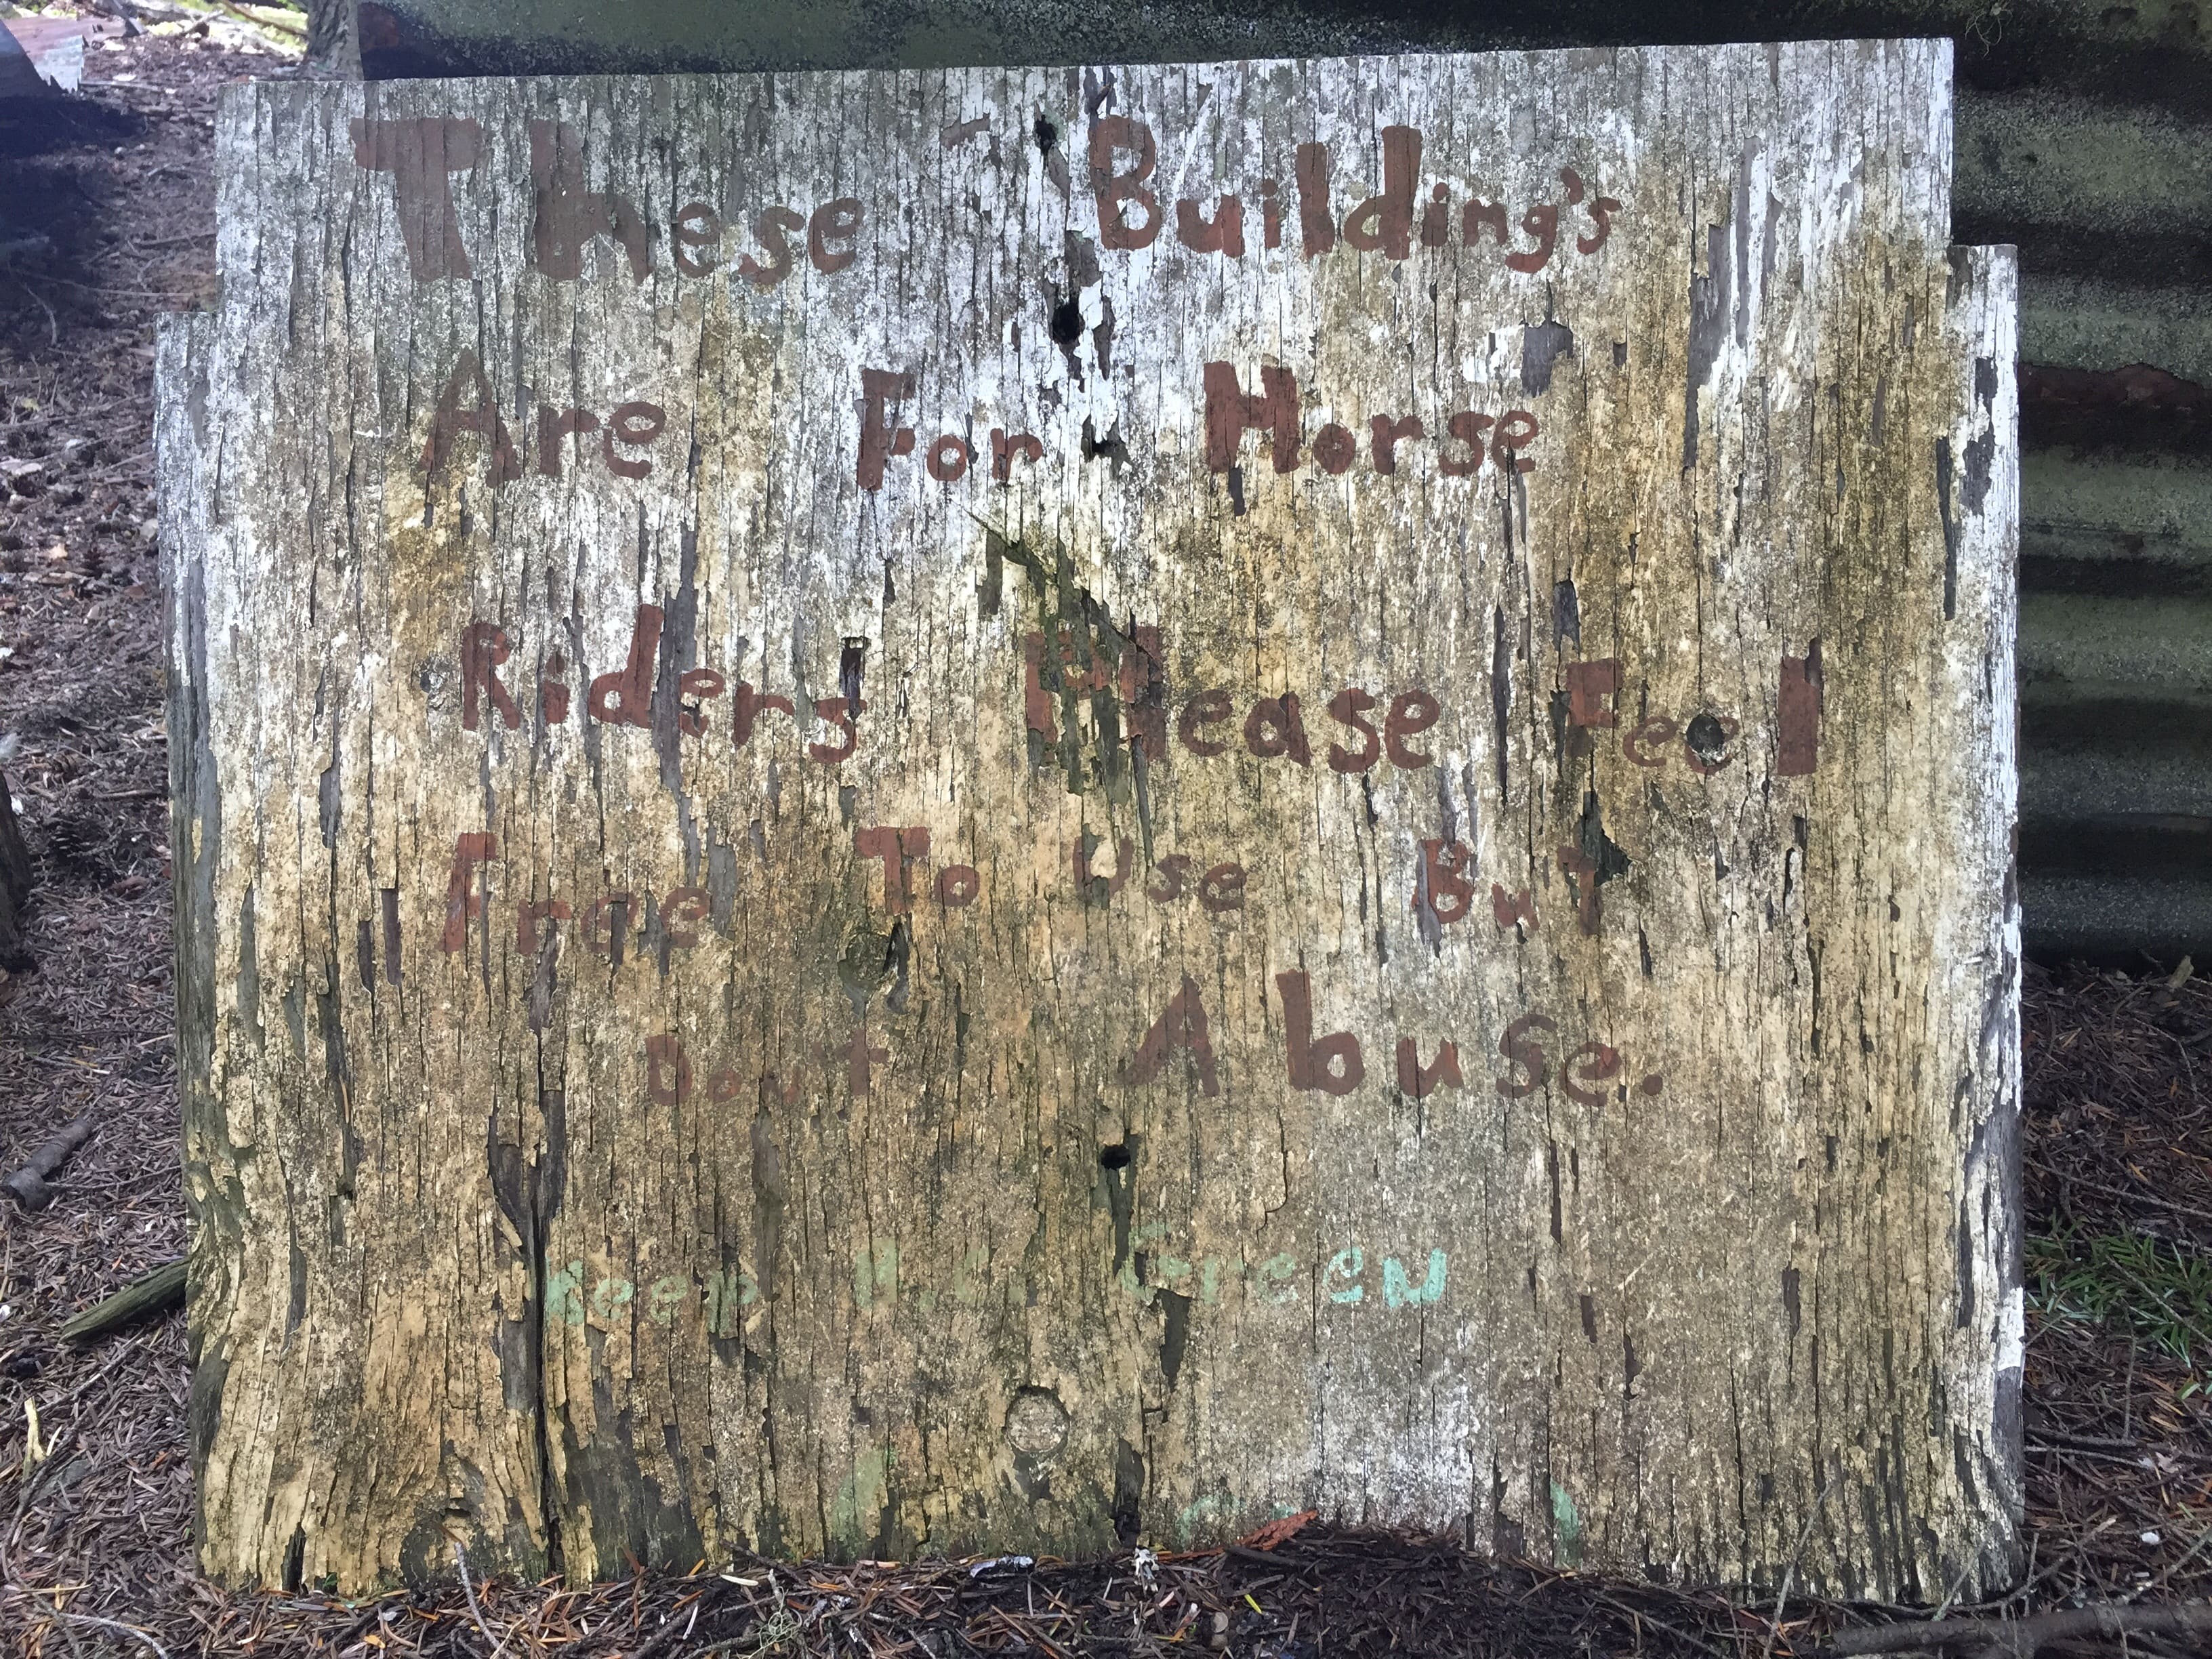 These Building's
Are For Horse
Riders' Please Feel
Free To Use But
Dont Abuse.
Keep Green